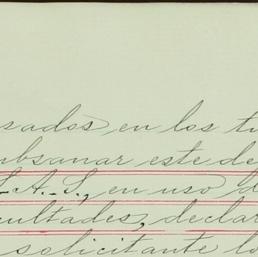 sados, en los tr
ubsanar este de
L.A.-S., en uso d
cultades, declar
solicitante lo